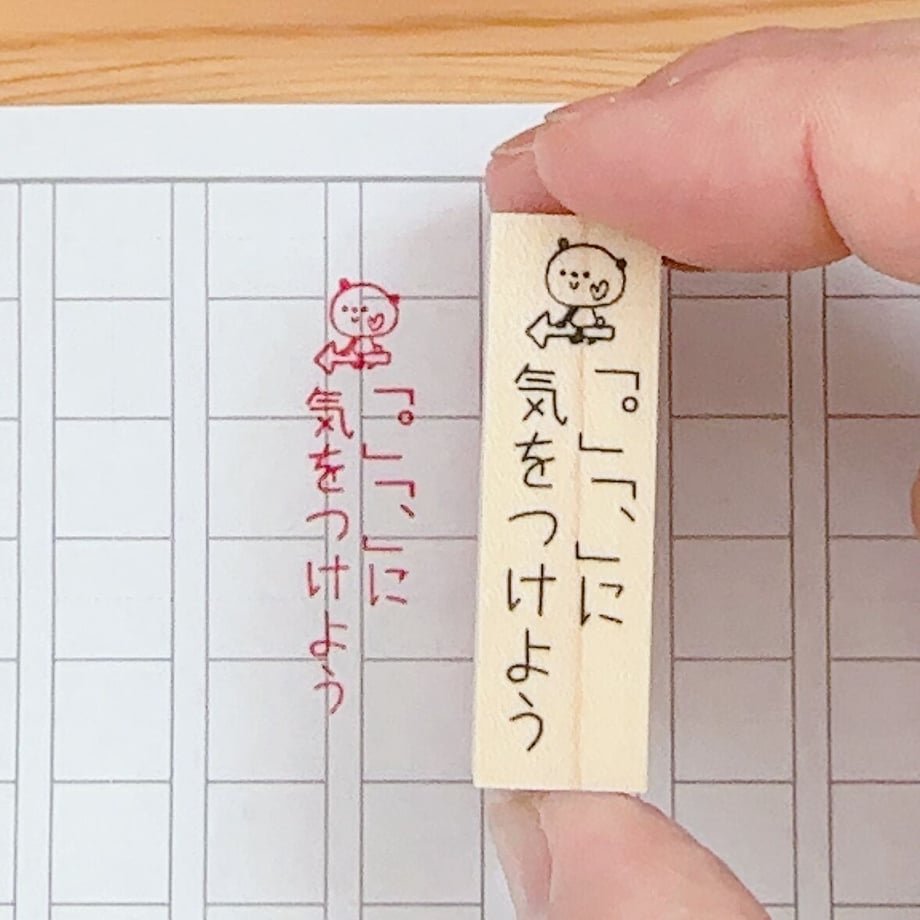 「。」「、」に
気をつけよう
「。」「、」に
気をつけよう